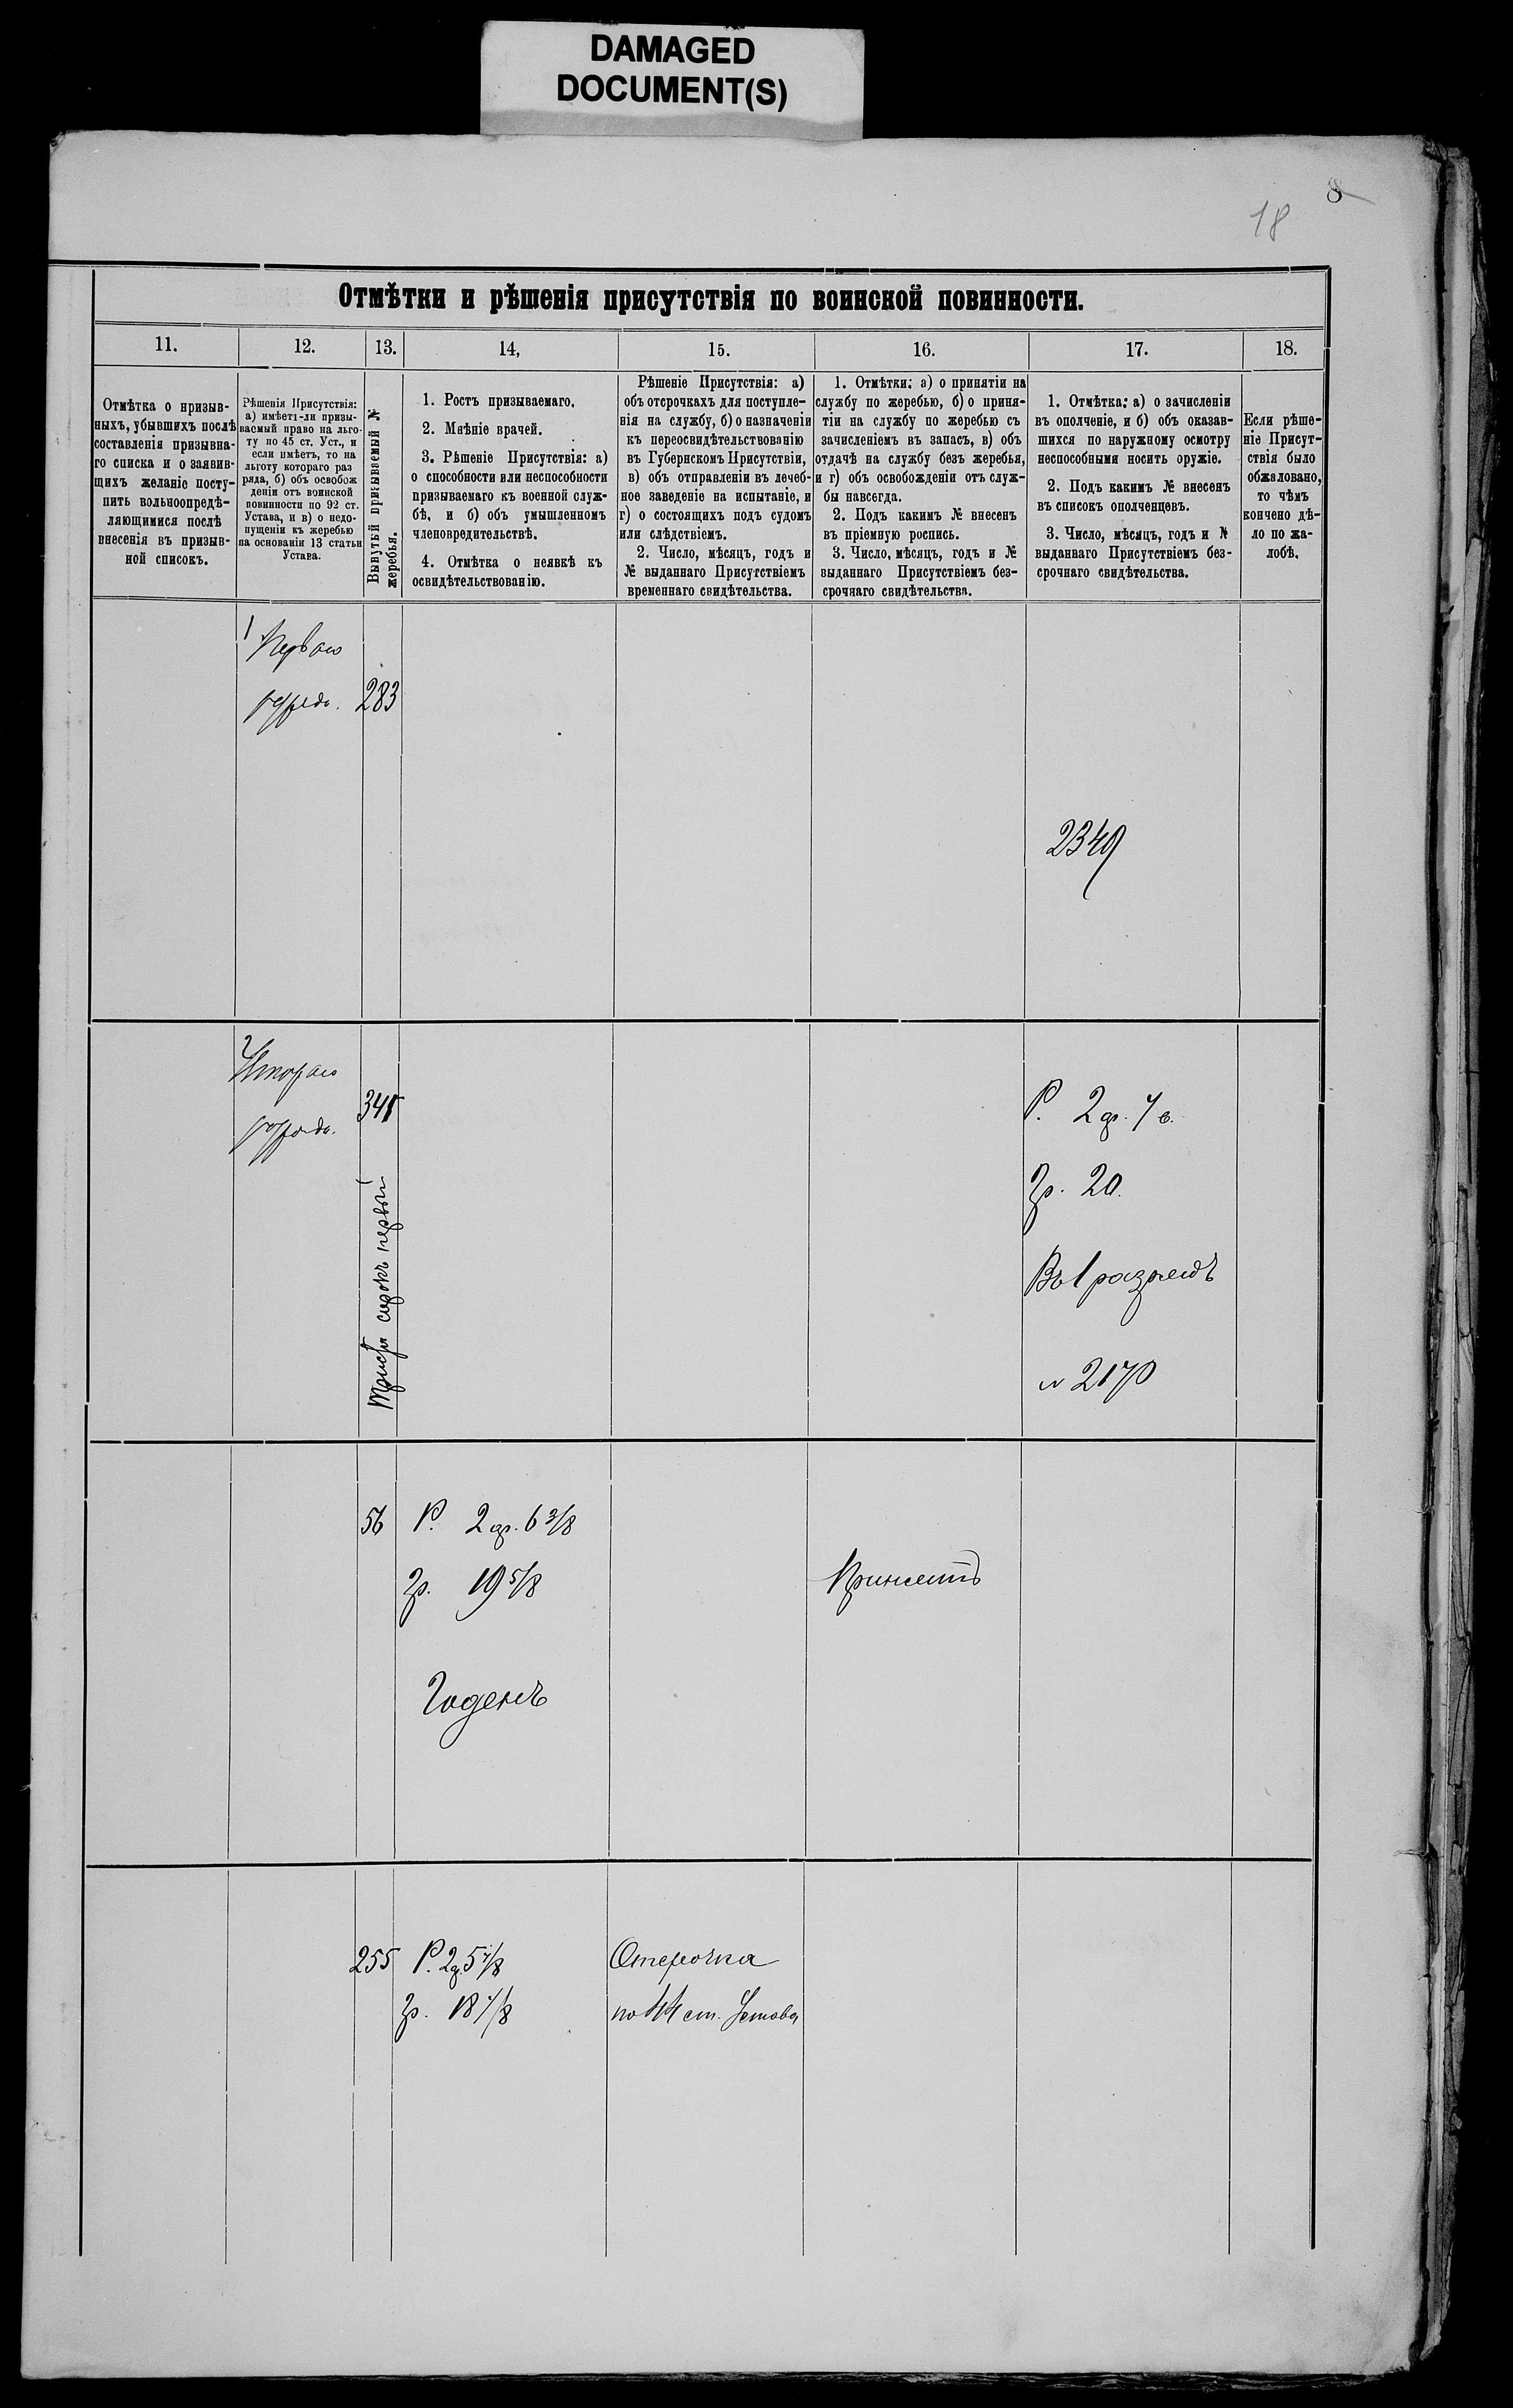 DAMAGED
DOCUMENT(S)
8
18
Отмѣтки и рѣшенія присутствія по воинской повинности.
11.
12.
13.
14,
15.
16.
17.
18.
Отмѣтка о призыв-
ныхъ, убывшихъ послѣ
составленія призывна-
го списка и о заявив-
щихъ желаніе посту-
пить вольноопредѣ-
ляющимися послѣ
внесенія въ призыв-
ной списокъ.
Рѣшенія Присутствія:
а) имѣетъ-ли призы-
ваемый право на льго-
ту по 45 ст. Уст., и
если имѣетъ, то на
льготу котораго раз
ряда, б) объ освобож
деніи отъ воинской
повинности по 92 ст.
Устава, и в) о недо-
пущеніи къ жеребью
на основаніи 13 статьи
Устава.
Вынутый призываемый №
жеребья.
1. Ростъ призываемаго.
2. Мнѣніе врачей.
3. Рѣшеніе Присутствія: а)
о способности или неспособности
призываемаго къ военной служ-
бѣ, и б) объ умышленномъ
членовредительствѣ.
4. Отмѣтка о неявкѣ къ
освидѣтельствованію.
Рѣшеніе Присутствія: а)
объ отсрочкахъ для поступле-
нія на службу, б) о назначеніи
къ переосвидѣтельствованію
въ Губернскомъ Присутствіи,
в) объ отправленіи въ лечеб-
ное заведеніе на испытаніе, и
г) о состоящихъ подъ судомъ
или слѣдствіемъ.
2. Число, мѣсяцъ, годъ и
№ выданнаго Присутствіемъ
временнаго свидѣтельства.
1. Отмѣтки: а) о принятіи на
службу по жеребью, б) о приня-
тіи на службу по жеребью съ
зачисленіемъ въ запасъ, в) объ
отдачѣ на службу безъ жеребья,
и г) объ освобожденіи отъ служ-
бы навсегда.
2. Подъ какимъ № внесенъ
въ пріемную роспись.
3. Число, мѣсяцъ, годъ и №
выданнаго Присутствіемъ без-
срочнаго свидѣтельства.
1. Отмѣтка: а) о зачисленіи
въ ополченіе, и б) объ оказав-
шихся по наружному осмотру
неспособными носить оружіе.
2. Подъ какимъ № внесенъ
въ списокъ ополченцевъ.
3. Число, мѣсяцъ, годъ и №
выданнаго Присутствіемъ без-
срочнаго свидѣтельства.
Если рѣше-
ніе Присут-
ствія было
обжаловано,
то чѣмъ
кончено дѣ-
ло по жа-
лобѣ.
1
Перваго
разряда.
283
2349
2
Втораго
разряда.
341
Триста сорокъ первый
Р. 2 ар. 7 в.
Гр. 20.
Въ 1 разрядъ
№ 2170
56
Р. 2 ар. 6 3/8
Гр. 19 5/8
Годенъ
Принятъ
255
Р. 2 а. 5 7/8
Гр. 18 7/8
Отсрочка
по 44 ст. Устава